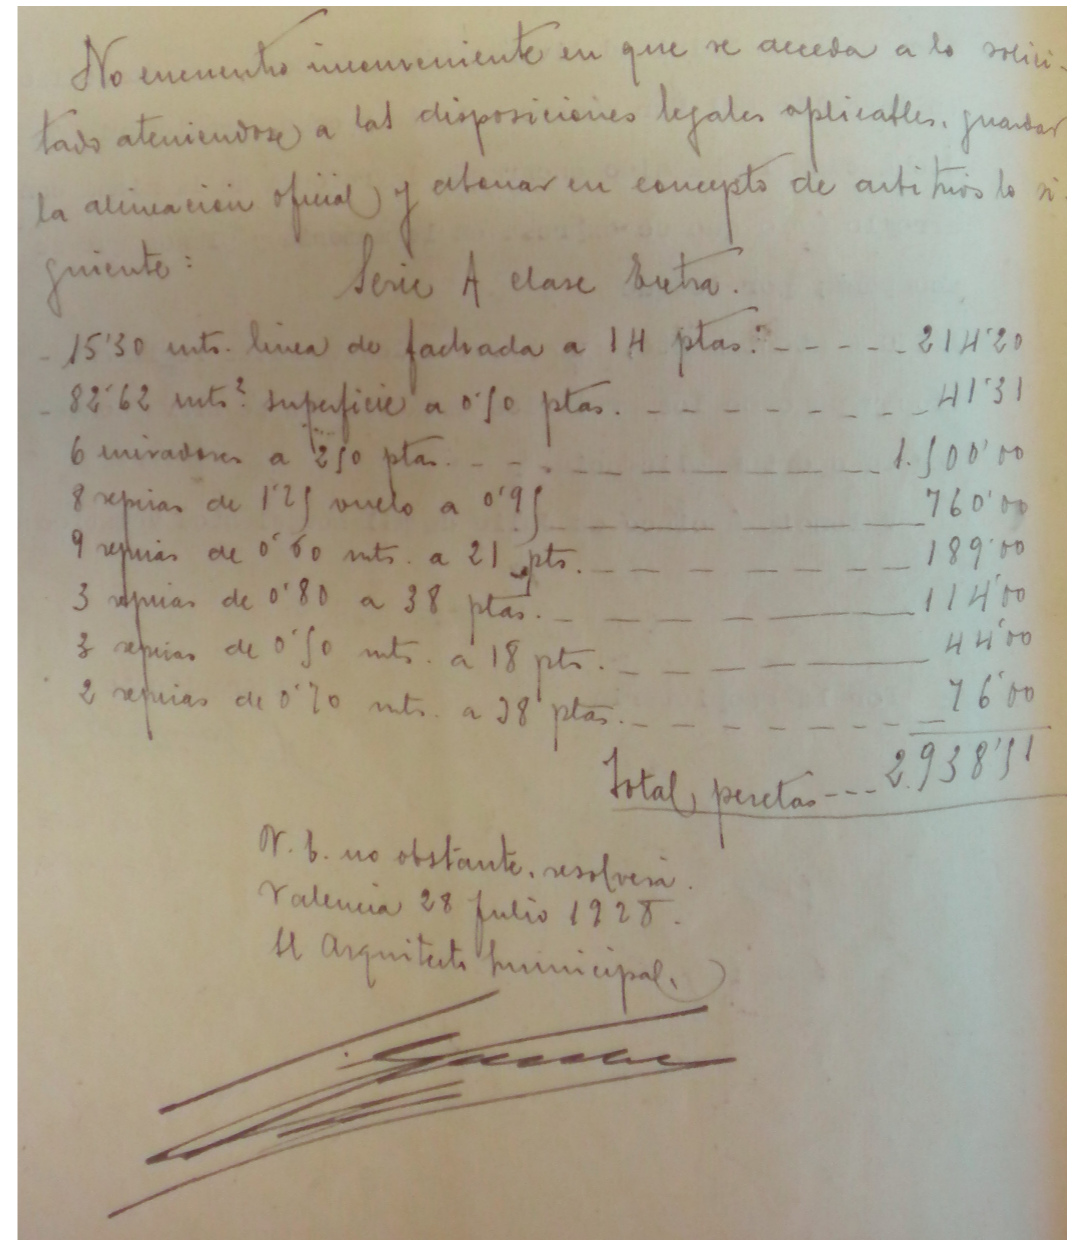 No encuentro inconveniente en que se acceda a lo solici-
tado ateniendose a las disposiciones legales aplicables, guardar
la alineación oficial y abonar en concepto de arbitrios lo si-
guiente:
Serie A clase Extra.
15'30 mts. linea de fachada a 14 ptas. - - - - - 214'20
82'62 mts.² superficie a 0'50 ptas. - - - - - - 41'31
6 miradores a 250 ptas. - - - - - - - 1.500'00
8 repisas de 1'25 vuelo a 0'95 - - - - - 760'00
9 repisas de 0'60 mts. a 21 pts. - - - - - - - 189'00
3 repisas de 0'80 a 38 ptas. - - - - - 114'00
3 repisas de 0'50 mts. a 18 pts. - - - - - 44'00
2 repisas de 0'70 mts. a 38 ptas. - - - - - - - 76'00
Total, pesetas - - - 2.938'51
V. S. no obstante, resolverá.
Valencia 28 Julio 1928.
El Arquitecto Municipal,